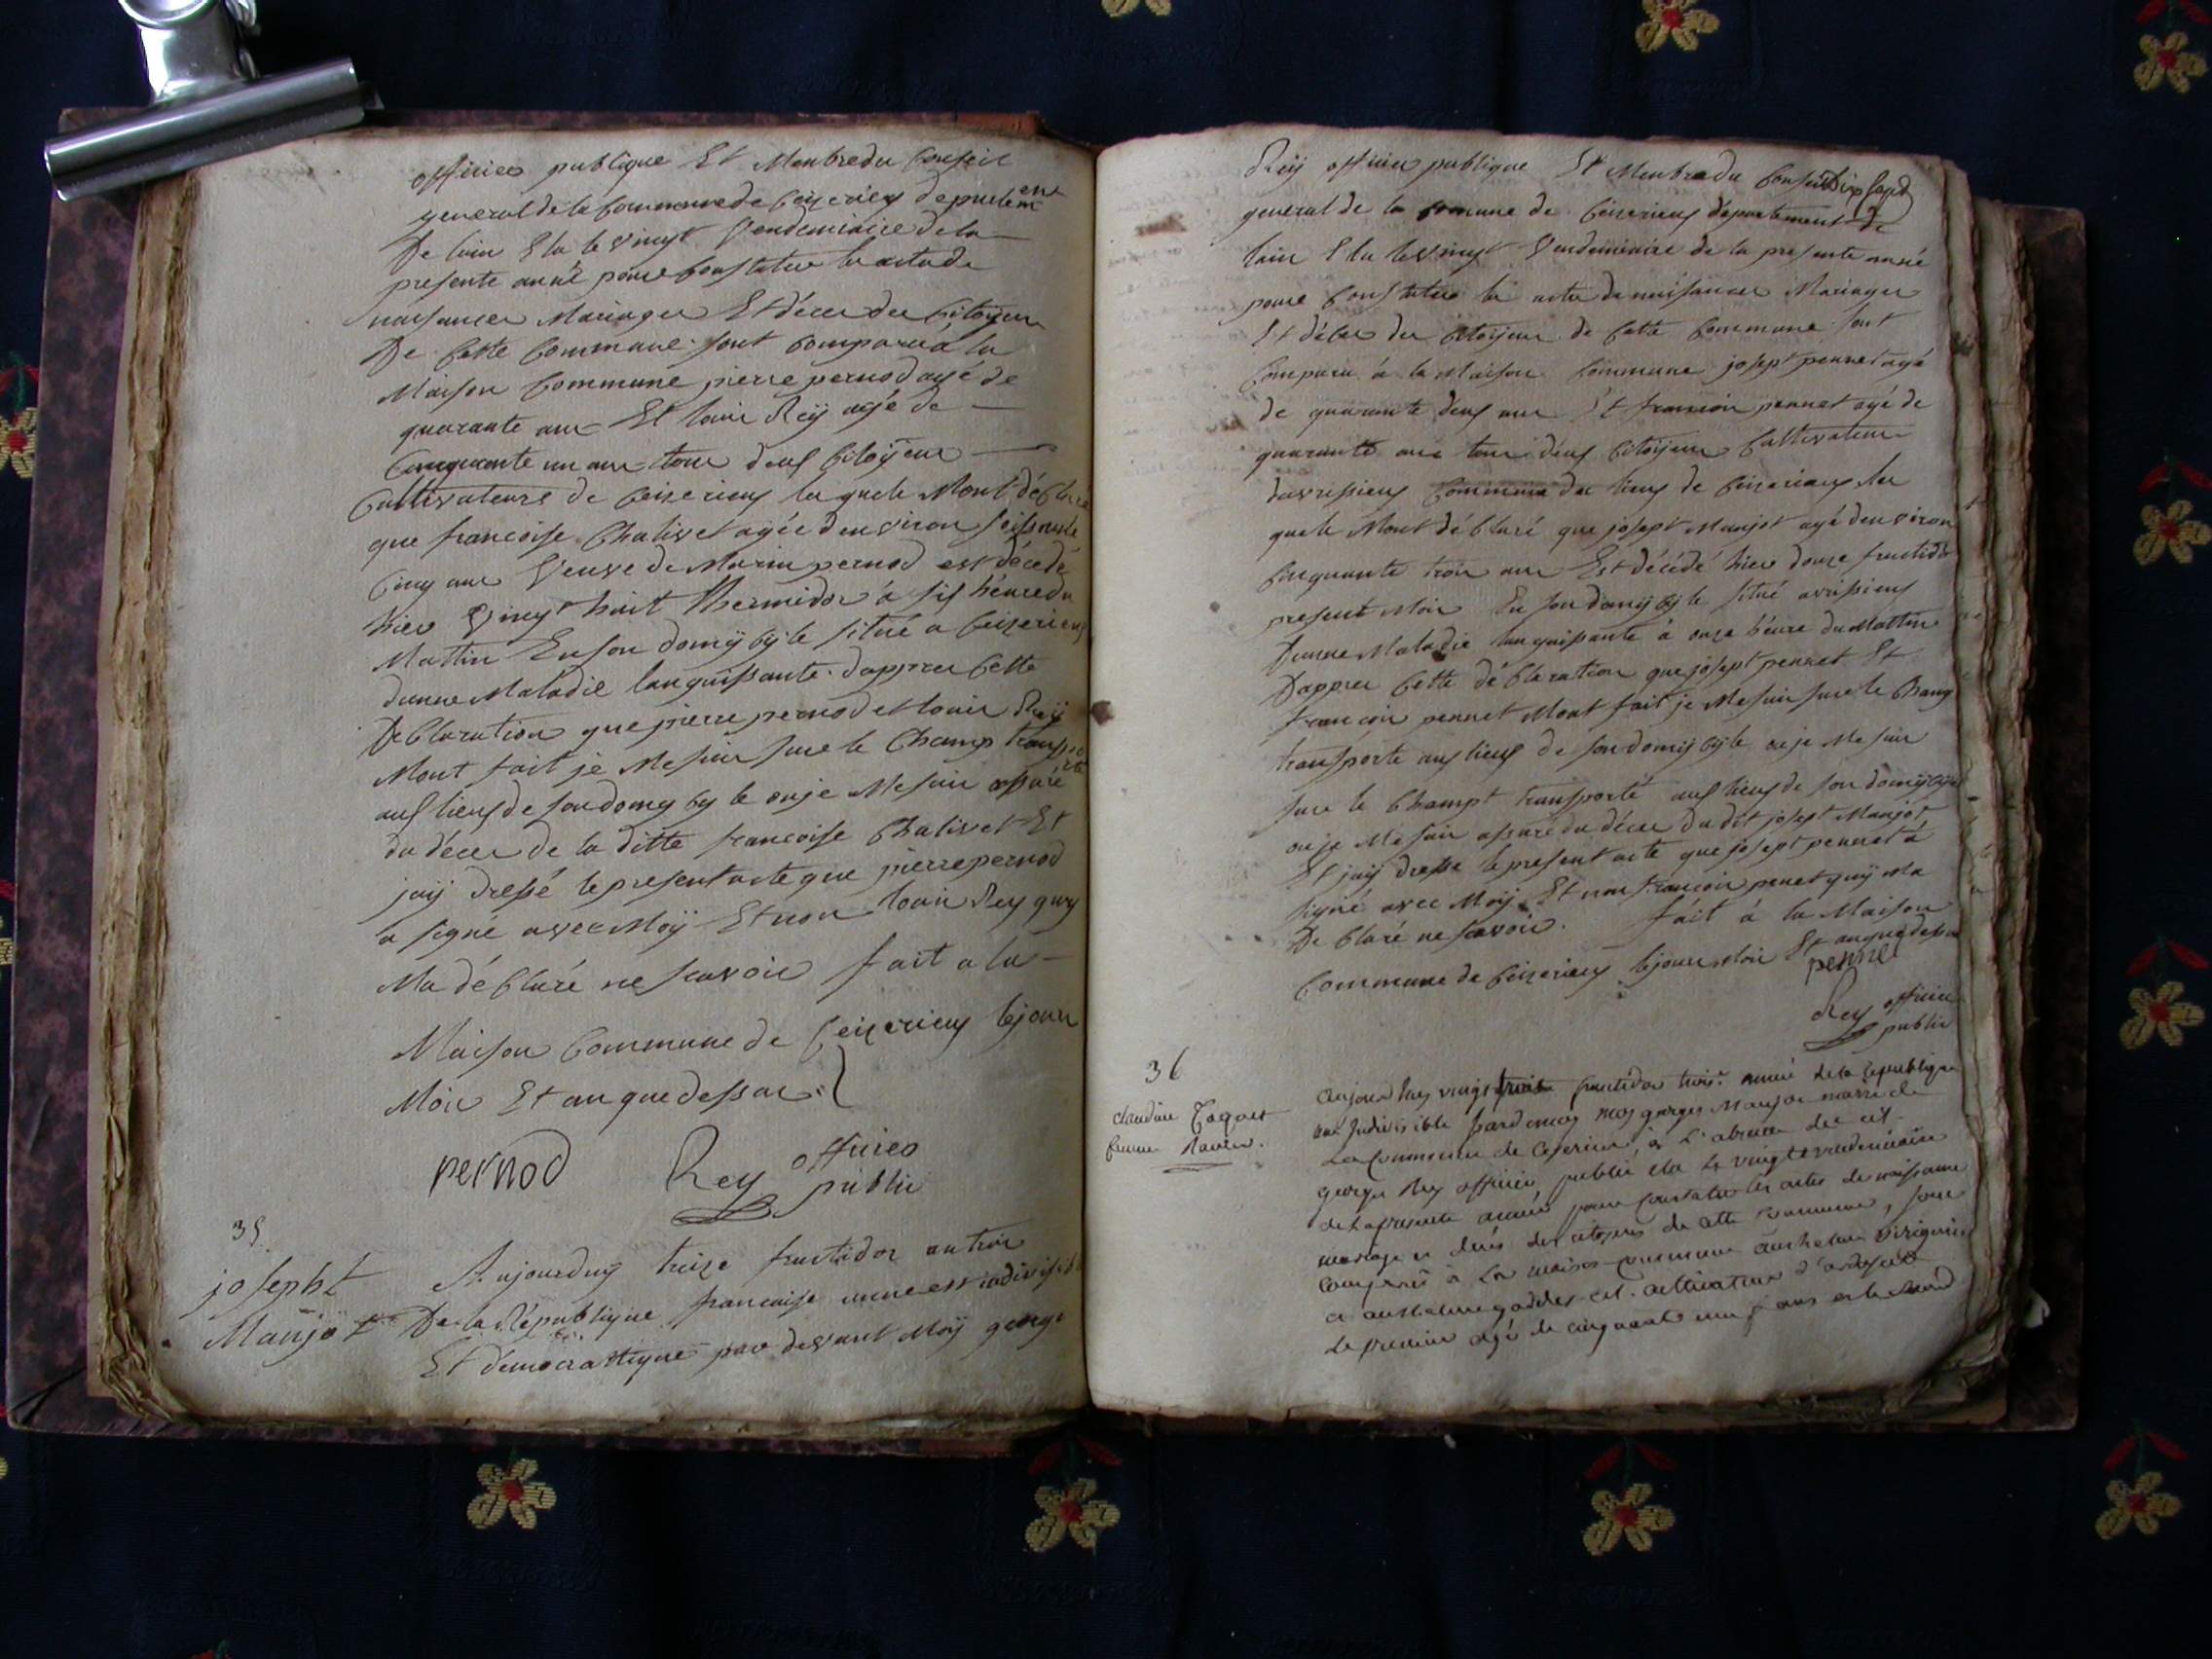 officier publique Et Menbre du Conseil
general de la Commune de Ceizerieu departement
De lain Elu le vingt Vendemiaire de la
presente anné pour Constatter les actes de
naisances Mariages Et déces des Citoÿens
De Cette Commune sont Comparu á la
Maison Commune pierre pernod agé de
quarante ans Et louis Reÿ agé de
Cinquante un ans tous deuf Citoÿens
Cultivateurs de Ceizerieuf les quele Mont déClaré
que francoise Chalivet agée denviron soissante
Cinq ans Veuve de Marin pernod est décedé
hier Vingt huit thermidor á sif héure du
Mattin En son domÿcÿle situé a Ceizerieuf
dunne Maladie languissante dapprés Cette
DeClaration que pierre pernod et louis Reÿ
Mont fait je Me suis sure le Champ transporté
auf lieuf de son domycyle ou je Me suis assuré
du décés de la ditte francoise Chalivet Et
jaÿ dressé le present acte que pierre pernod
a signé avec Moÿ Et non louis Rey quy
Ma déClaré ne scavoir fait a la
Maison Commune de Ceizerieuf le jour
Mois Et an que dessus
pernod Rey officier
public
35
josepht
Manjot
Aujourduÿ treize fructidor an trois
De la République francaise unne est indivisible
Et démocrattique par devant Moÿ george
Dix sept
Reÿ officier publique Et Menbre du Conseil
general de la Commune de Ceizerieuf departement de
lain Elu le Vingt Vendemiaire de la presente anné
pour Constatter les actes de naissances Mariages
Et déces des Citoÿens de Cette Commune sont
Comparu á la Maison Commune josept pennet agé
de quarante deuf ans Et francois pennet agé de
quarante ans tous deuf Citoÿens Cultivateurs
davrissieuf Commune des lieuf de Ceizerieuf les
quele Mont déClaré que josept Manjot agé denviron
Cinquante trois ans Est décédé hier douze fructidor
present Mois En son domÿcÿle situé avrissieuf
Dunne Maladie languissante á onze héure du Mattin
Dapprés Cette déClaration que josept pennet Et
francois pennet Mont fait je Me suis sure le Champ
transporte auf lieuf de son domÿcÿle ou je Me suis
sure le Champt transporté auf lieuf de son domÿcÿle
ou je Me suis assuré du déces du dit josept Manjot
Et jaÿ dresse le present acte que josept pennet á
signé avec Moÿ Et non francois penet quÿ Ma
DeClaré ne scavoir. fait á la Maison
Commune de Ceizerieuf le jour Mois Et an que dessus
pennet
Rey officier
public
36
Claudine
femme
aujourdhuy vingt trois fructidor trois.e année de la république
une Indivisible pardevant moy george Manjot maire de
La Commune de Ceserieu, à L'absence du cit.
george Rey officier public élu le vingt vendemiaire
de La presente année pour Constater les actes de naissance
mariage et decés des citoyens de cette Commune, sont
comparus à La maison Commune anthelme
et anthelme cit. cultivateurs d'
Le premier agé de cinquante ans et le second